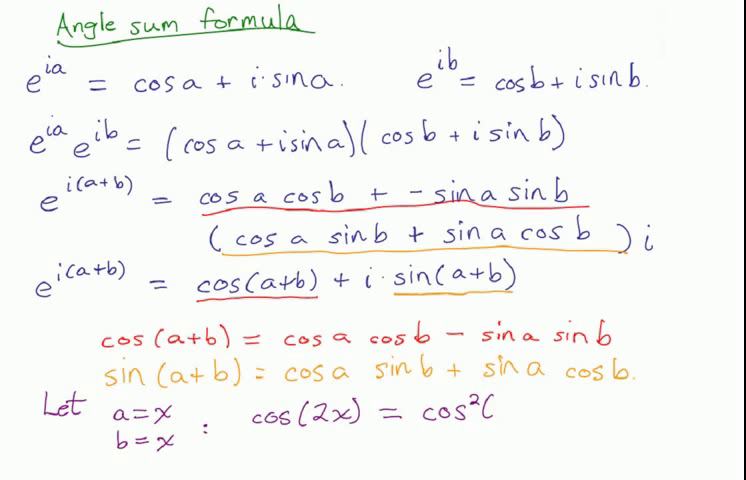 Angle sum formula
e^{ia} = cos a + i · sin a. e^{ib} = cos b + i sin b.
e^{ia} e^{ib} = (cos a + i sin a)(cos b + i sin b)
e^{i(a+b)} = cos a cos b + - sin a sin b
(cos a sin b + sin a cos b) i
e^{i(a+b)} = cos(a+b) + i · sin(a+b)
cos (a+b) = cos a cos b - sin a sin b
sin (a+b) = cos a sin b + sin a cos b.
Let a = x : cos(2x) = cos²(
b = x